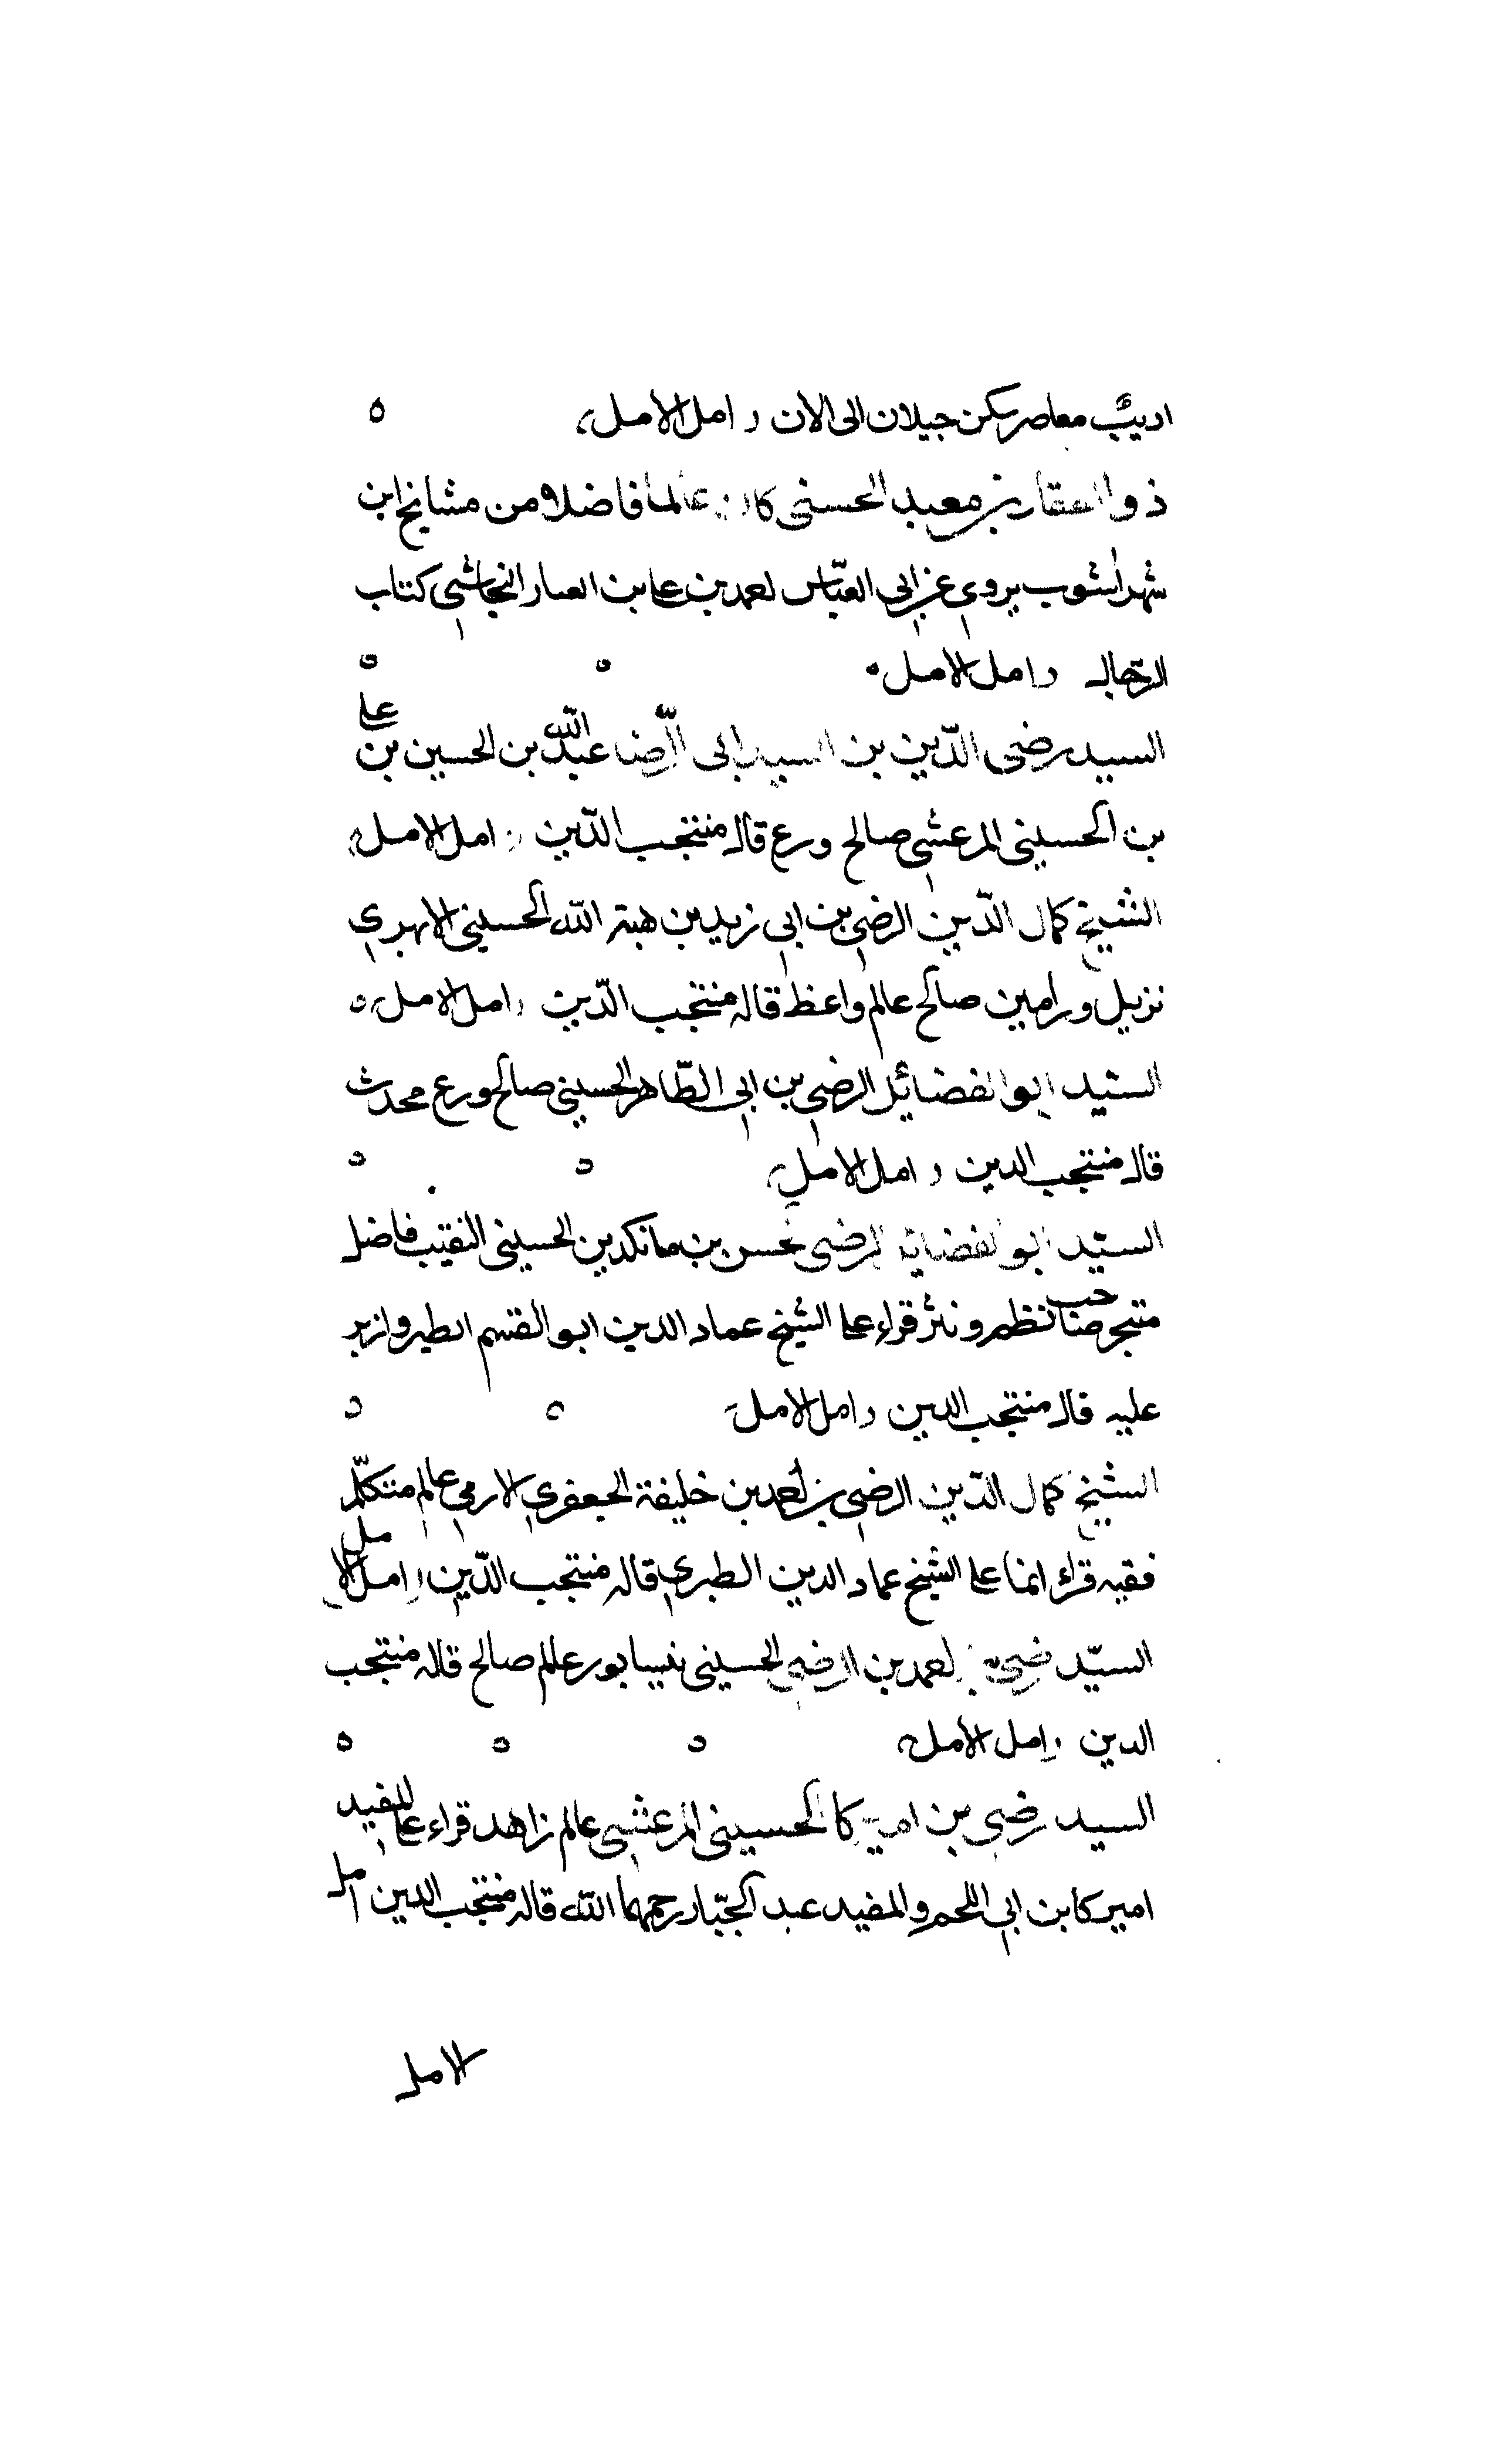 اديب معاصر يسكن جيلان الى الان امل الامل
ذو الفقار بن معبد الحسنى كان عالما فاضلا من مشايخ ابن
شهراشوب يروى عن ابى العبّاس احمد بن على بن العباس النجاشى كتاب
الرجال امل الامل
السيد رضى الدّين بن السيد ابى الرّضا عبد الله بن الحسين بن على
بن الحسينى المرعشى صالح ورع قاله منتجب الدّين امل الامل
الشيخ كمال الدّين الرضى بن ابى زيد بن هبة الله الحسينى الابهرى
نزيل ورامين صالح عالم واعظ قاله منتجب الدّين امل الامل
السيّد ابو الفضائل الرضى بن ابى الطّاهر الحسينى صالح ورع محدث
قاله منتجب الدين امل الامل
السيّد ابو الفضائل الرضى بن مانكديم الحسينى النقيب فاضل
متبحر صاحب نظم ونثر قراء على الشيخ عماد الدين ابو القسم الطبرى
عليه قاله منتجب الدين امل الامل
الشيخ كمال الدّين الرضى بن احمد بن خليفة الجعفرى الارمى عالم متكلّم
فقيه قراء ايضا على الشيخ عماد الدين الطبرى قاله منتجب الدّين امل الامل
السيّد رضى بن احمد بن الرضى الحسينى نيسابور عالم صالح قاله منتجب
الدين امل الامل
السيد رضى بن اميركا الحسينى المرعشى عالم زاهد قراء على المفيد
اميركا بن ابى اللحم والمفيد عبد الجبّار رحمهما الله قاله منتجب الدين امل
الامل